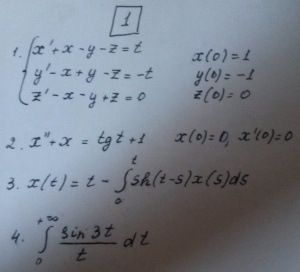 1
1. { x' + x - y - z = t x(0) = 1
y' - x + y - z = -t y(0) = -1
z' - x - y + z = 0 z(0) = 0
2. x'' + x = tg t + 1 x(0) = 0, x'(0) = 0
3. x(t) = t - ∫₀ᵗ sh(t-s)x(s)ds
4. ∫₀^{+∞} sin 3t / t dt